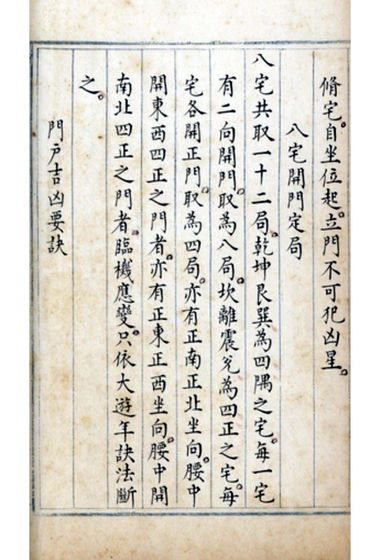 脩宅。自坐位起。立門不可犯凶星。
八宅開門定局
八宅共取一十二局。乾坤艮巽為四隅之宅。每一宅
有二向開門。取為八局。坎離震兌為四正之宅。每
宅各開正門。取為四局。亦有正南正北坐向。腰中
開東西四正之門者。亦有正東正西坐向。腰中開
南北四正之門者。臨機應變。只依大遊年訣法斷
之。
門戶吉凶要訣